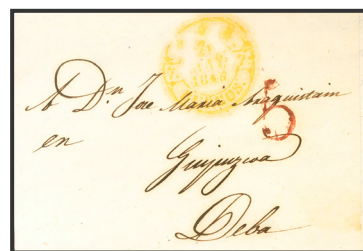 A Dn Jose Maria Araquistain
5
en
Guipuzcoa
Deba